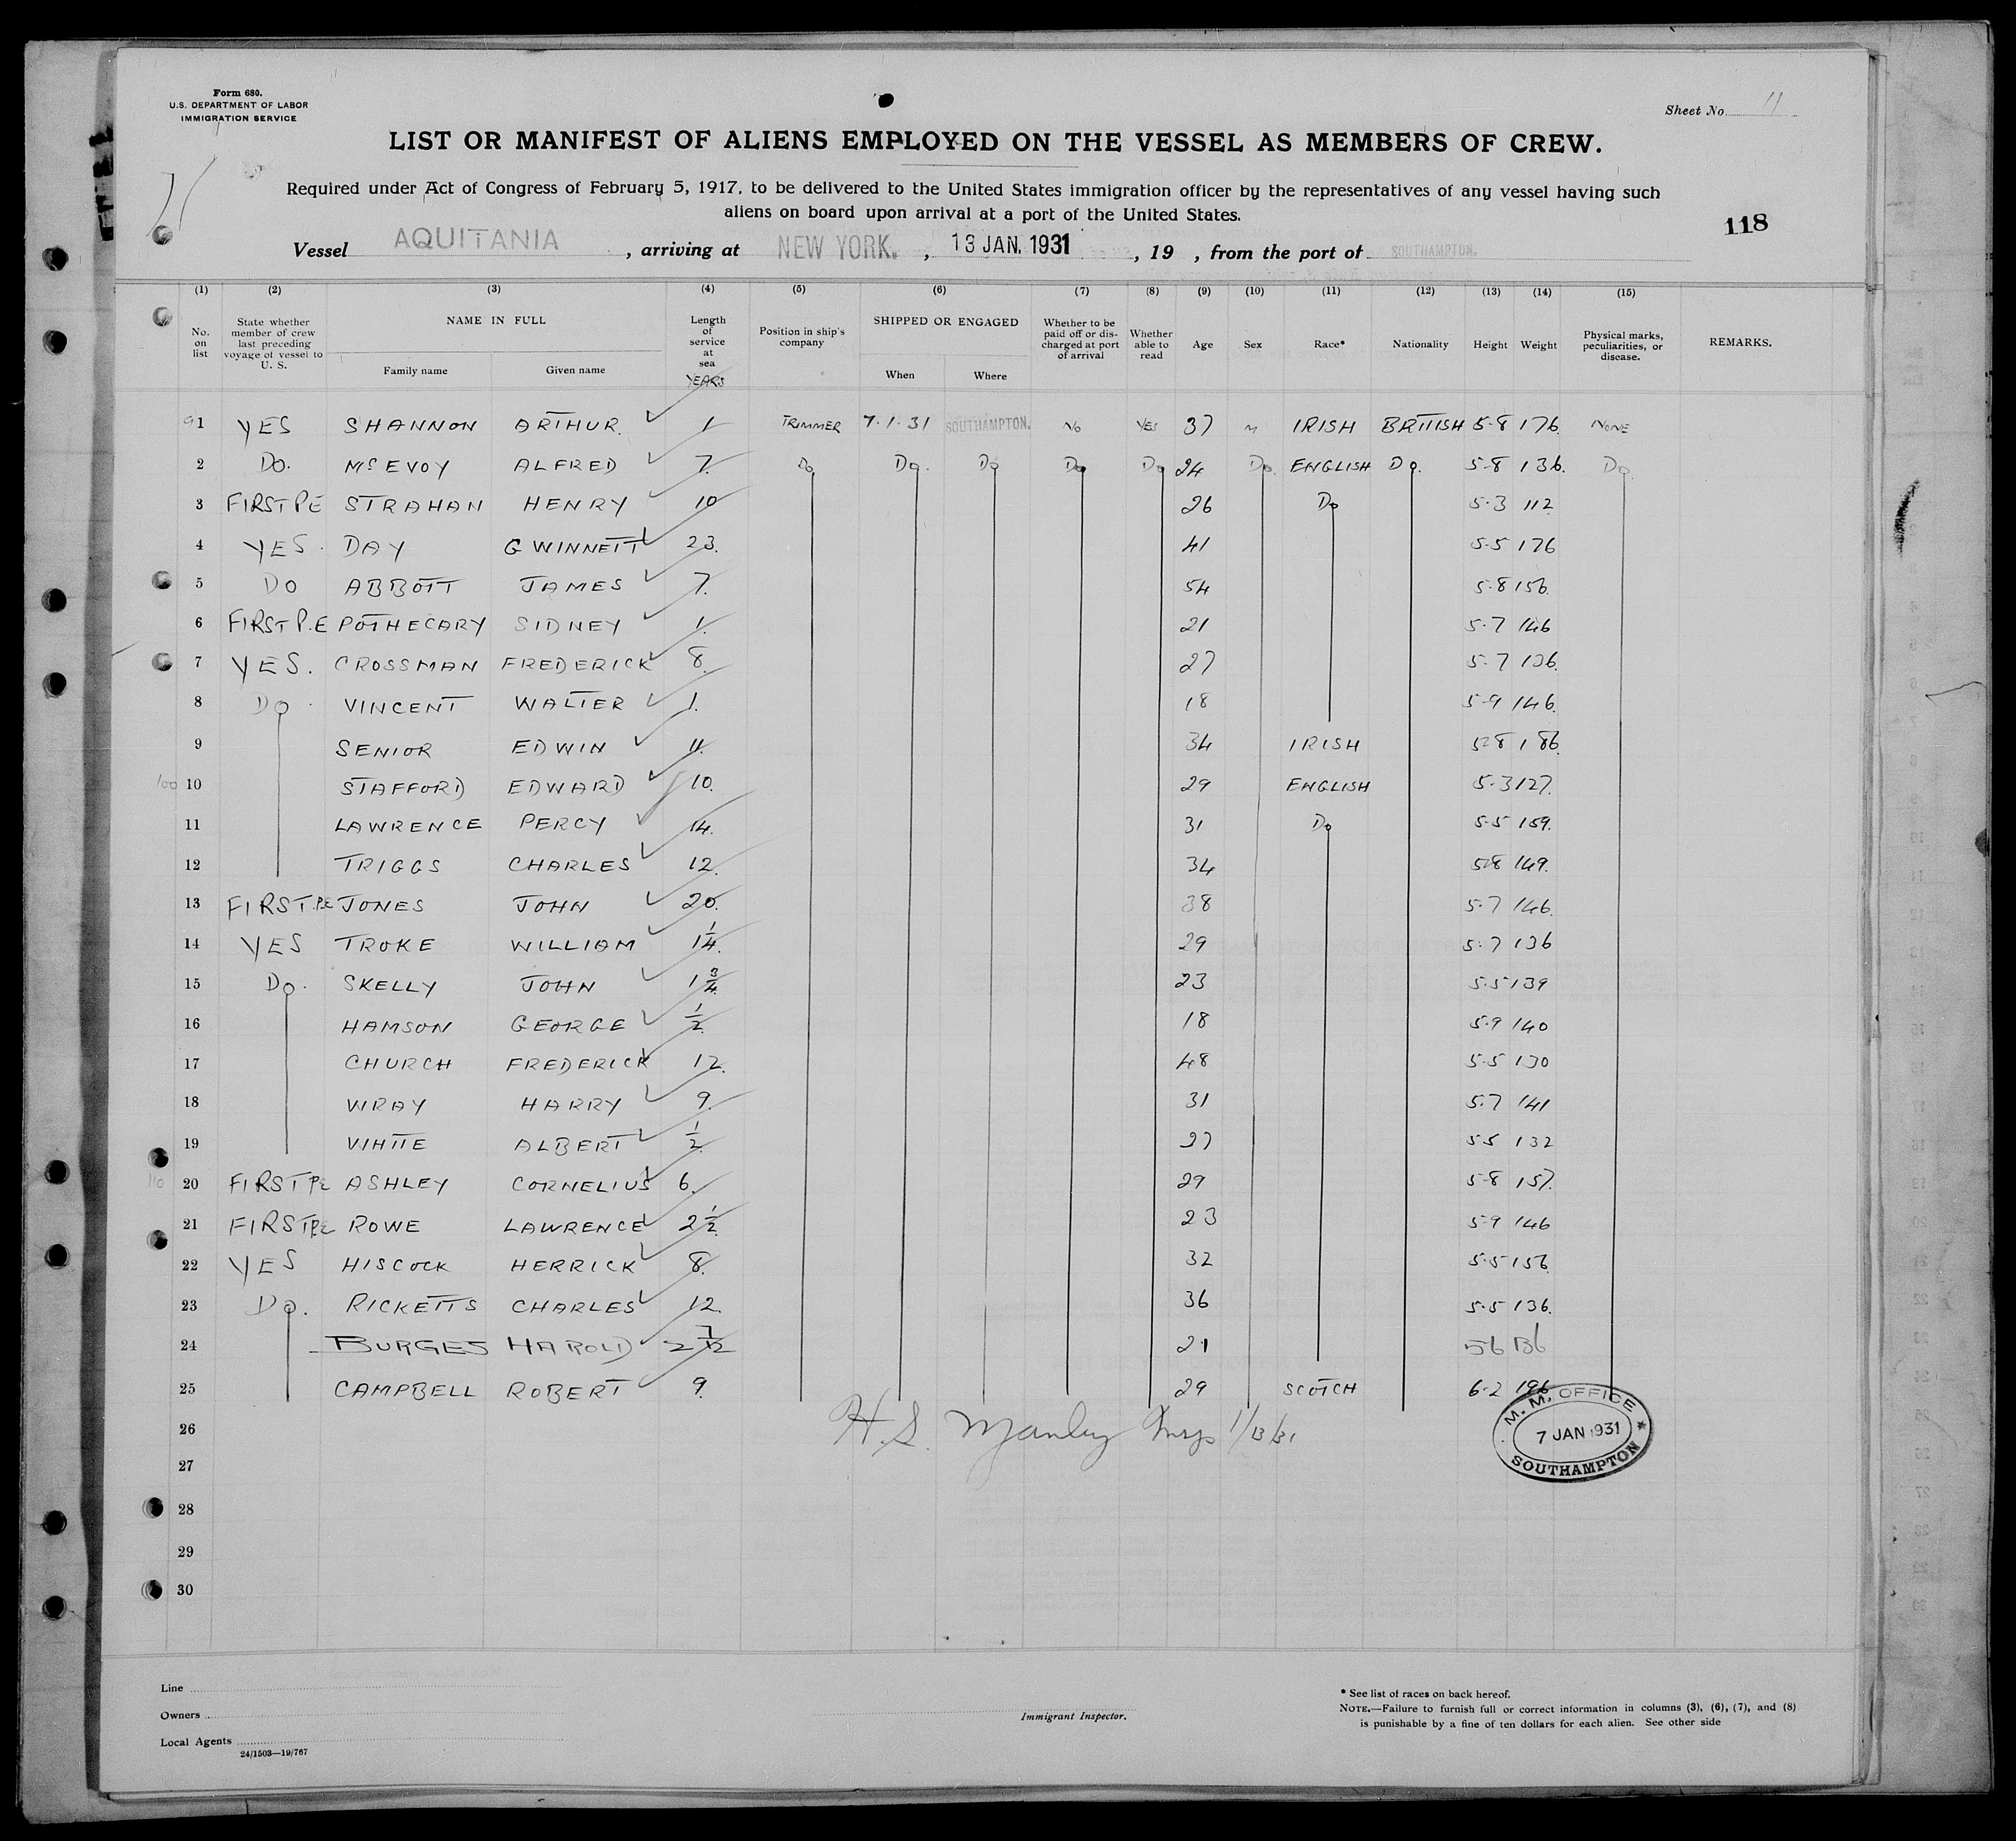 Form 680.
U.S. DEPARTMENT OF LABOR
IMMIGRATION SERVICE
Sheet No. 11
LIST OR MANIFEST OF ALIENS EMPLOYED ON THE VESSEL AS MEMBERS OF CREW.
Required under Act of Congress of February 5, 1917, to be delivered to the United States immigration officer by the representatives of any vessel having such
aliens on board upon arrival at a port of the United States.
118
Vessel AQUITANIA, arriving at NEW YORK., 13 JAN. 1931, 19 , from the port of SOUTHAMPTON.
(1) (2) (3) (4) (5) (6) (7) (8) (9) (10) (11) (12) (13) (14) (15)
No. on list
State whether member of crew last preceding voyage of vessel to U. S.
NAME IN FULL
Family name
Given name
Length of service at sea
YEARS
Position in ship's company
SHIPPED OR ENGAGED
When
Where
Whether to be paid off or discharged at port of arrival
Whether able to read
Age
Sex
Race*
Nationality
Height
Weight
Physical marks, peculiarities, or disease.
REMARKS.
1 YES SHANNON ARTHUR. 1 TRIMMER 7.1.31 SOUTHAMPTON. NO YES 37 M IRISH BRITISH 5-8 176. NONE
2 DO. McEVOY ALFRED 7. Do Do. Do Do Do 24 Do. ENGLISH Do. 5-8 136. Do
3 FIRST PE STRAHAN HENRY 10 26 Do 5.3 112
4 YES. DAY GWINNETT 23. 41 5.5 176
5 DO ABBOTT JAMES 7. 54 5.8 156.
6 FIRST P.E POTHECARY SIDNEY 1. 21 5.7 146
7 YES. CROSSMAN FREDERICK 8. 27 5.7 136.
8 Do VINCENT WALTER 1. 18 5-9 146.
9 SENIOR EDWIN 11. 34 IRISH 5.8 186.
100 10 STAFFORD EDWARD 10. 29 ENGLISH 5.3 127.
11 LAWRENCE PERCY 14. 31 Do 5.5 159.
12 TRIGGS CHARLES 12. 34 5.8 149.
13 FIRST.P.E JONES JOHN 20. 38 5.7 146.
14 YES TROKE WILLIAM 1 1/4. 29 5.7 136
15 Do. SKELLY JOHN 1 3/4 23 5.5 139
16 HAMSON GEORGE 1/2 18 5.9 140
17 CHURCH FREDERICK 12. 48 5-5 130
18 WRAY HARRY 9. 31 5.7 141
19 WHITE ALBERT 1/2 27 5-5 132
110 20 FIRST PE ASHLEY CORNELIUS 6. 29 5-8 157.
21 FIRST PE ROWE LAWRENCE 2 1/2. 23 5-9 146
22 YES HISCOCK HERRICK 8. 32 5.5 156.
23 Do. RICKETTS CHARLES 12. 36 5.5 136.
24 BURGES HAROLD 2 7/12 21 56 136
25 CAMPBELL ROBERT 9. 29 SCOTCH 6.2 196
26
H.S. Manley Insp 1/13/31
M. M. OFFICE
7 JAN 1931
SOUTHAMPTON
27
28
29
30
Line
Owners
Local Agents
24/1503—19/767
Immigrant Inspector.
* See list of races on back hereof.
NOTE.—Failure to furnish full or correct information in columns (3), (6), (7), and (8)
is punishable by a fine of ten dollars for each alien. See other side